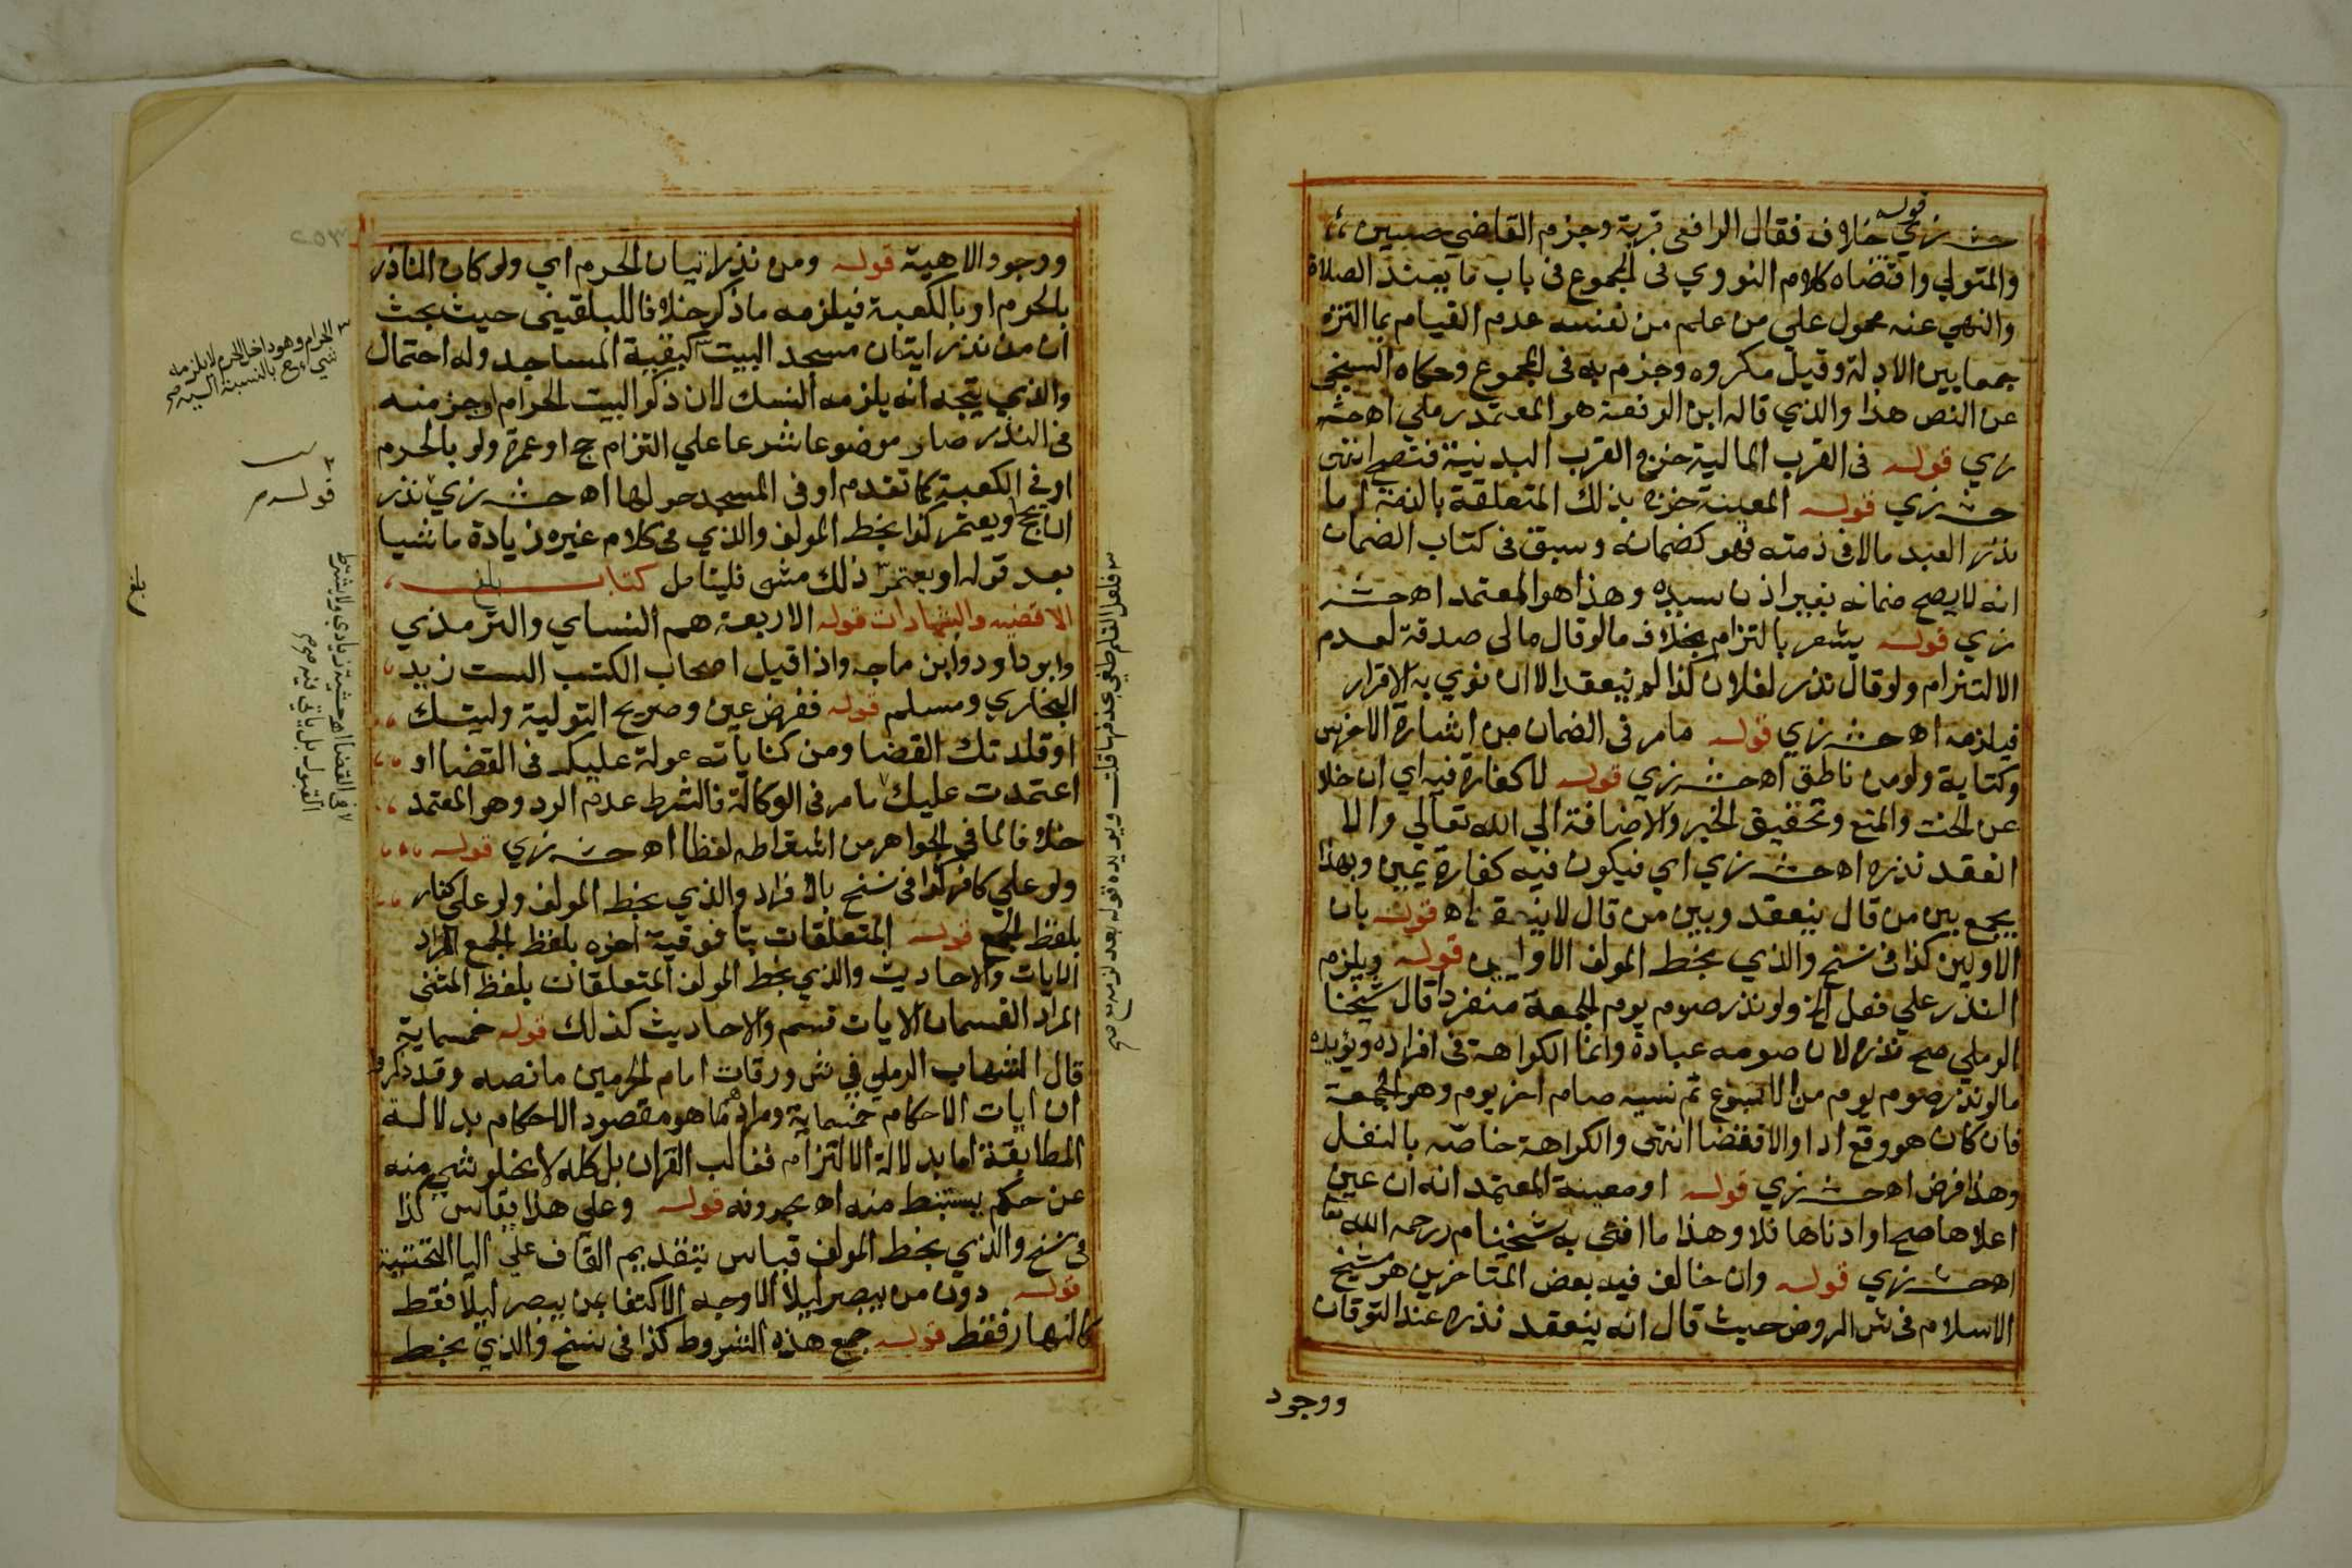 حش زي قوله خلاف فقال الرافعي قربة وجزم القاضي حسين
والمتولي واقتضاه كلام النووي في المجموع في باب ما يفسد الصلاة
والنهي عنه محمول على من علم من نفسه عدم القيام بما التزمه
جمعا بين الادلة وقيل مكروه وجزم به في المجموع وحكاه السنجي
عن النص هذا والذي قاله ابن الرفعة هو المعتمد رملي اه حش
زي قوله في القرب المالية خرج القرب البدنية فتصح انتهى
حش زي قوله المعينة خرج بذلك المتعلقة بالذمة اما
نذر العبد مالا في ذمته فهو كضمانه وسبق في كتاب الضمان
انه لا يصح ضمانه بغير اذن سيده وهذا هو المعتمد اه حش
زي قوله يشعر بالتزام بخلاف ما لو قال مالي صدقة لعدم
الالتزام ولو قال نذر لفلان كذا لم ينعقد الا ان نوي به الاقرار
فيلزمه اه حش زي قوله ما مر في الضمان من اشارة الاخرس
وكتابة ولو من ناطق اه حش زي قوله لا كفارة فيه اي ان خلا
عن الحث والمنع وتحقيق الخبر والاضافة الي الله تعالي والا
انعقد نذره اه حش زي اي فيكون فيه كفارة يمين وبهذا
يجمع بين من قال ينعقد وبين من قال لا ينعقد اه قوله بان
الاولين كذا في نسخ والذي بخط المولف الاوليين قوله ويلزم
النذر علي فعل الخ ولو نذر صوم يوم الجمعة منفردا قال شيخنا
الرملي صح نذره لان صومه عبادة وانما الكراهة في افراده ويؤيده
ما لو نذر صوم يوم من الاسبوع ثم نسيه صام اخر يوم وهو الجمعة
فان كان هو وقع ادا والا فقضا انتهى والكراهة خاصة بالنفل
وهذا فرض اه حش زي قوله او معينة المعتمد انه ان عين
اعلاها صح او ادناها فلا وهذا ما افتى به شيخنا م ر رحمه الله تعا
اه حش زي قوله وان خالف فيه بعض المتاخرين هو شيخ
الاسلام في ش الروض حيث قال انه ينعقد نذره عند التوقان
ووجود
ووجود الاهبة قوله ومن نذر اتيان الحرم اي ولو كان الناذر
بالحرم او بالكعبة فيلزمه ما ذكر خلافا للبلقيني حيث بحث
ان من نذر ايتان مسجد البيت كبقية المساجد وله احتمال
والذي يتجه انه يلزمه النسك لان ذكر البيت الحرام او جزء منه
في النذر صار موضوعا شرعا علي التزام حج او عمرة ولو بالحرم
او في الكعبة كما تقدم او في المسجد حولها اه حش زي نذر
ان يحج او يعتمر كذا بخط المولف والذي في كلام غيره زيادة ماشيا
بعد قوله او يعتمر ذلك مشى فليتامل كتاب
الاقضيه والشهادات قوله الاربعة هم النساي والترمذي
وابو داود وابن ماجه واذا قيل اصحاب الكتب الست زيد
البخاري ومسلم قوله ففرض عين وصريح التولية وليتك
او قلدتك القضا ومن كناياته عولة عليك في القضا او
اعتمدت عليك ما مر في الوكالة فالشرط عدم الرد وهو المعتمد
خلافا لما في الجواهر من اشتراطه لفظا اه حش زي قوله
ولو علي كافر كذا في نسخ بالافراد والذي بخط المولف ولو على كفار
بلفظ الجمع قوله المتعلقات بتا فوقية اخره بلفظ الجمع المراد
الايات والاحاديث والذي بخط المولف المتعلقان بلفظ المثنى
المراد القسمان الايات قسم والاحاديث كذلك قوله خمسماية
قال الشهاب الرملي في ش ورقات امام الحرمين ما نصه وقد ذكروا
ان ايات الاحكام خمسماية ومرادهم ما هو مقصود الاحكام بدلالة
المطابقة اما بدلالة الالتزام فغالب القران بل كله لا يخلو شي منه
عن حكم يستنبط منه اه بحروفه قوله وعلي هذا يقاس كذا
في نسخ والذي بخط المولف قياس بتقديم القاف على اليا التحتية
قوله دون من يبصر ليلا الاوجه الاكتفا بمن يبصر ليلا فقط
كالنهار فقط قوله جمع هذه الشروط كذا في نسخ والذي بخط
الحرام وهو داخل الحرم لا يلزمه
شي اه ح بالنسبة اليه صح
قوله
بلغ
لا في القضا اه حشية زيادي ولا يشترط
القبول بل ياتي فيه